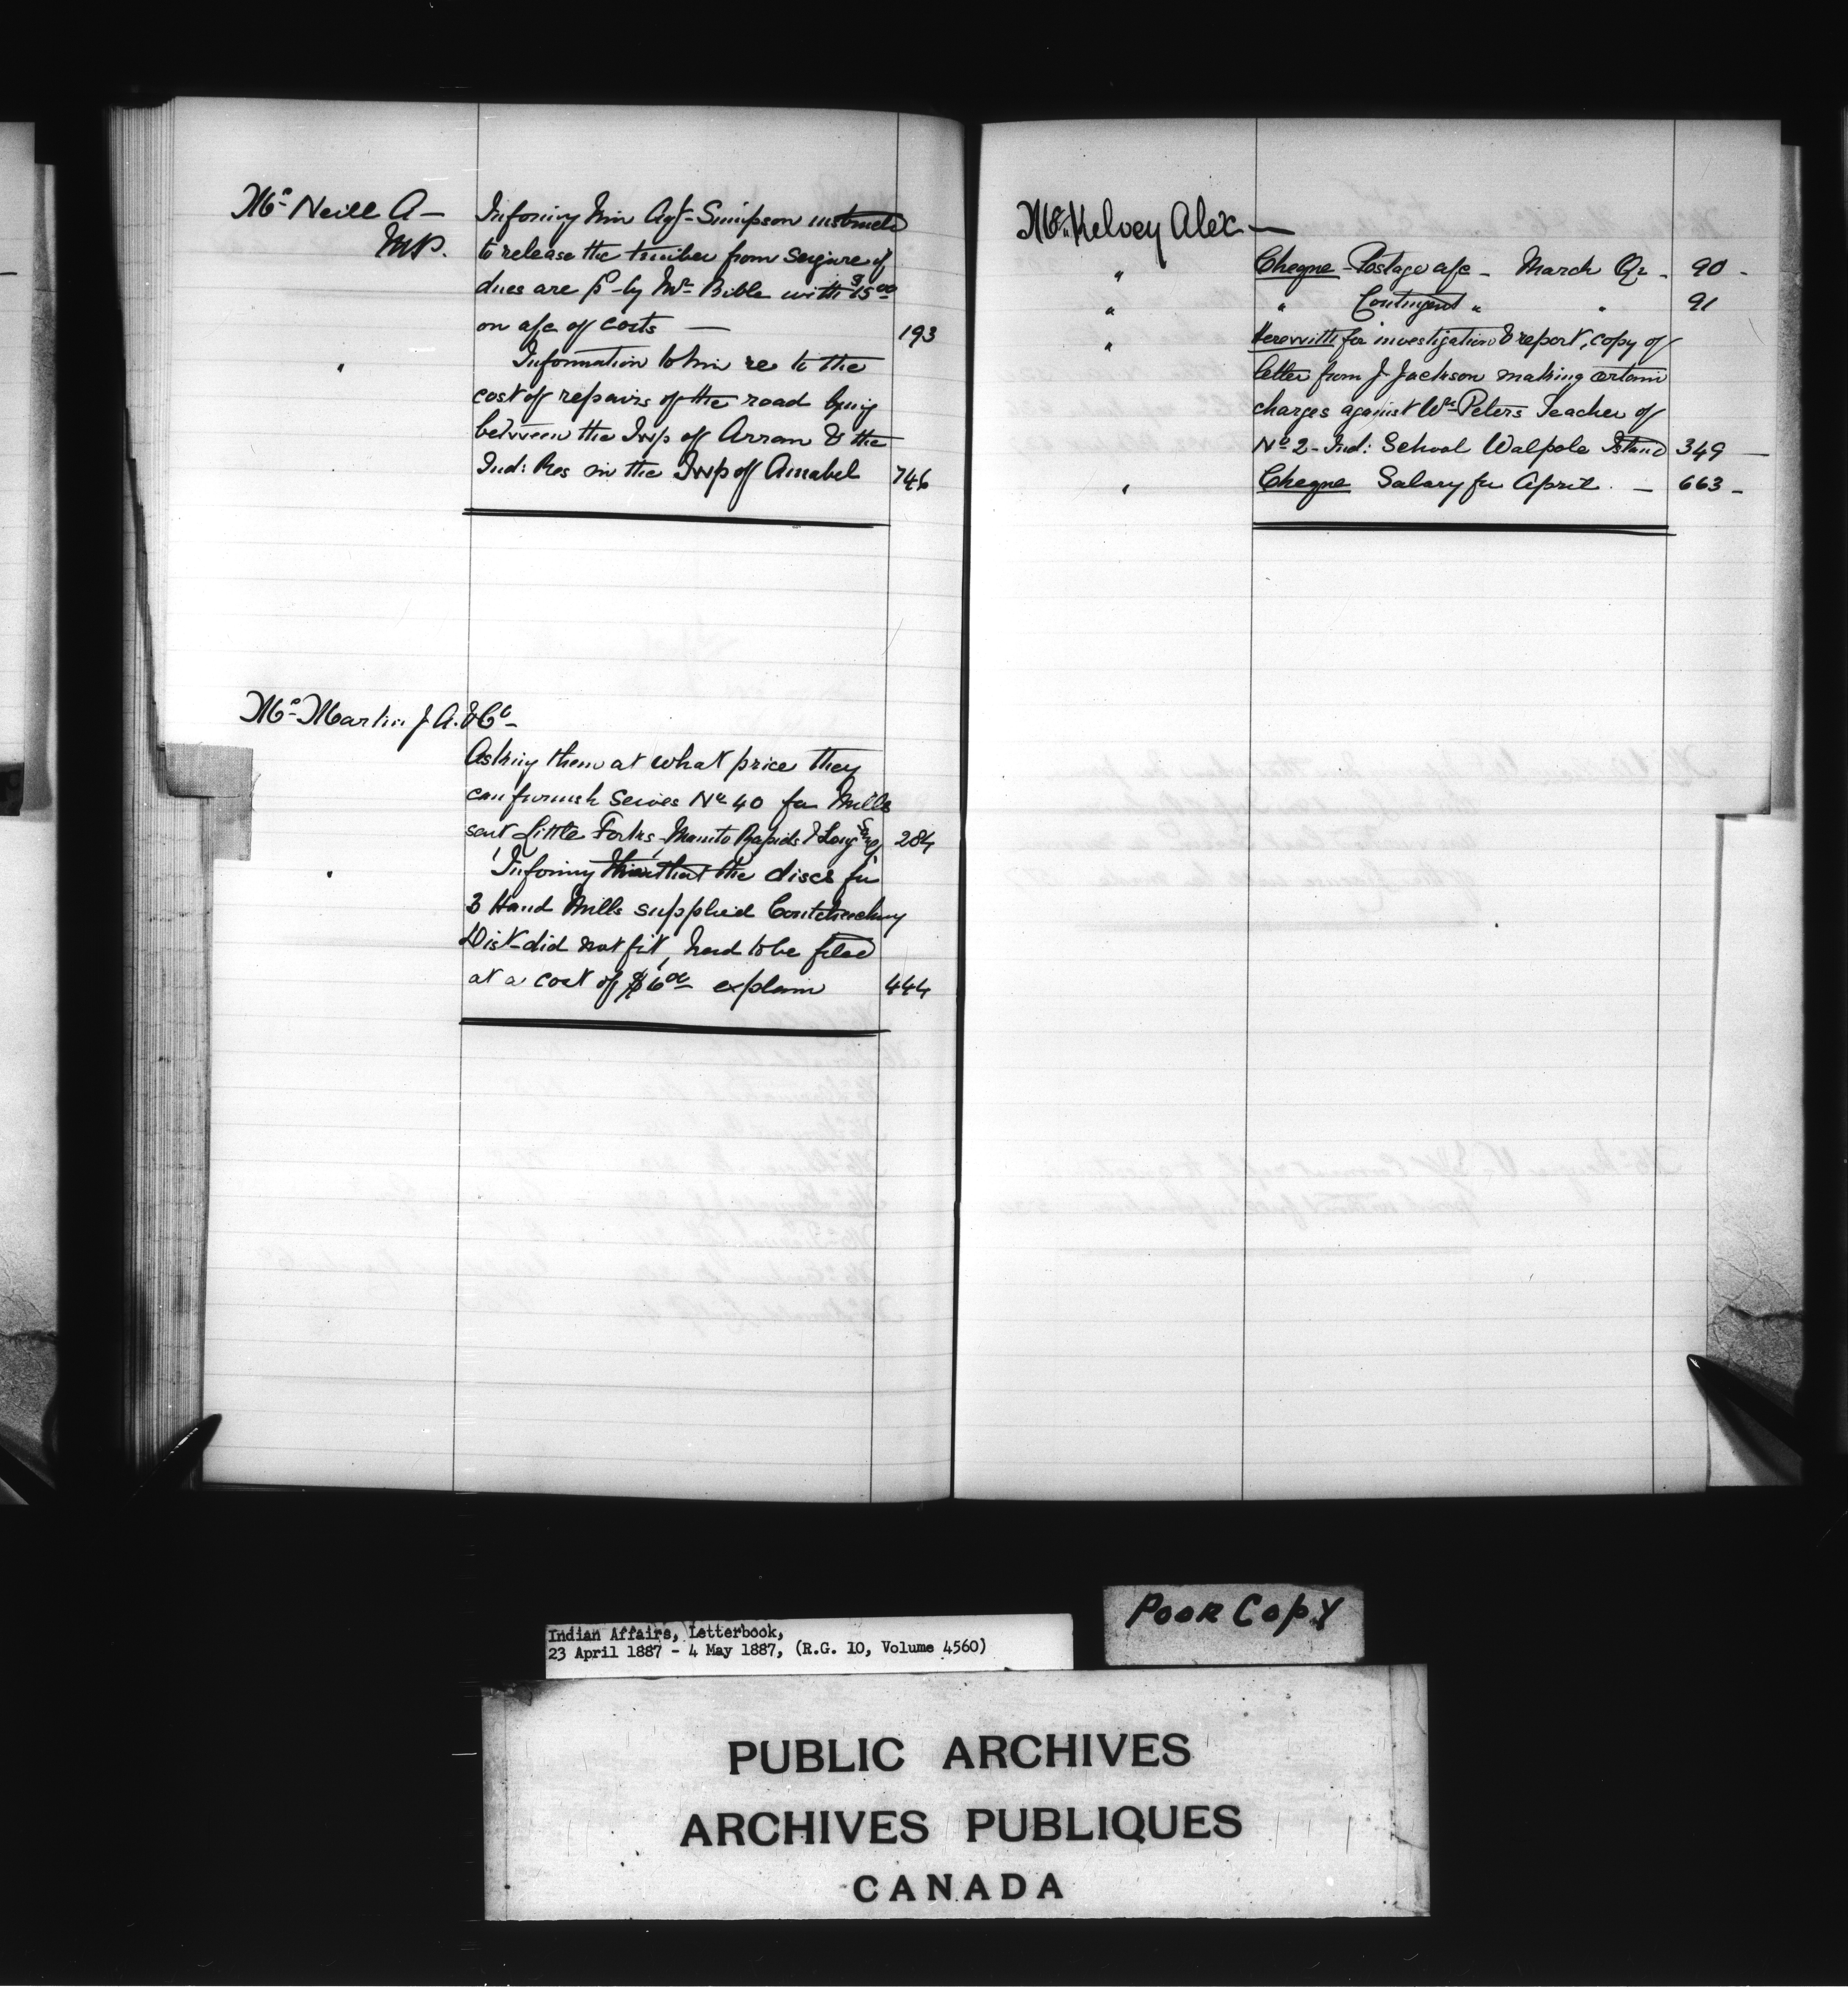 Mc Neill A—
M.P.
Informing him Agt. Simpson instructed
to release the timber from seizure if
dues are pd by Mr Bible with $15.00
on a/c of costs — 193
" Information to him re to the
cost of repairs of the road lying
between the Twp of Arran & the
Ind: Res in the Twp of Amabel 746
Mc Martin J. A. & Co
Asking them at what price they
can furnish Seives No 40 for Mills
sent Little Forks, Manito Rapids & Long 284
" Informing that the discs for
3 Hand Mills supplied Coutcheching
Dist did not fit, had to be filed
at a cost of $6.00 explain 444
Mc Kelvey Alex —
" Cheque Postage a/c — March Qr — 90 -
" " Contingent " " 91
" Herewith for investigation & report, copy of
letter from J Jackson making certain
charges against Wm Peters Teacher of
No 2 - Ind: School Walpole Island 349 —
" Cheque Salary for April. — 663 -
Indian Affairs, Letterbook,
23 April 1887 - 4 May 1887, (R.G. 10, Volume 4560)
POOR COPY
PUBLIC ARCHIVES
ARCHIVES PUBLIQUES
CANADA